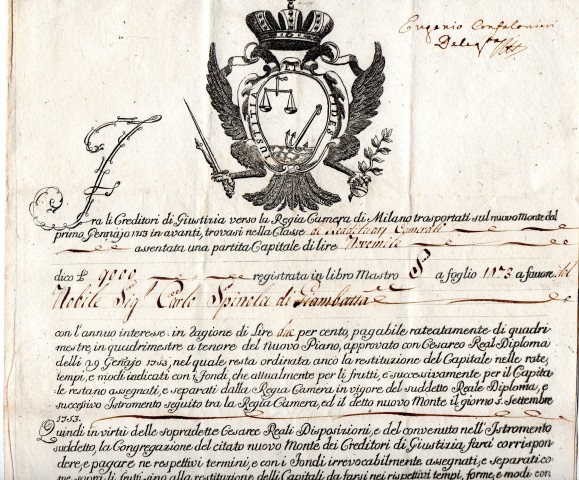 Eugenio Confalonieri
Delegato
JUSTITIA FIDES
Fra li Creditori di Giustizia verso la Regia Camera di Milano trasportati sul nuovo Monte dal
primo Gennajo 1753 in avanti, trovasi nella Classe di Camerali
assentata una partita Capitale di lire Novemila
dico £ 9000 registrata in libro Mastro a foglio 1173 a favore del
Nobile Sigr Carlo Spinola di Giambatta
con l'annuo interesse in ragione di Lire due per cento, pagabile rateatamente di quadri-
mestre, in quadrimestre a tenore del Nuovo Piano, approvato con Cesareo Real Diploma
delli 29 Gennajo 1753, nel quale resta ordinata anco la restituzione del Capitale nelle rate,
tempi, e modi indicati con i fondi, che attualmente per li frutti, e successivamente per il Capita-
le restano assegnati, e separati dalla Regia Camera in vigore del suddetto Reale Diploma, e
successivo Istromento seguito tra la Regia Camera, ed il detto nuovo Monte il giorno 5. Settembre
1753.
Quindi in virtù delle sopradette Cesaree Reali Disposizioni, e del convenuto nell'Istromento
suddetto, la Congregazione del citato nuovo Monte dei Creditori di Giustizia, farà corrispon-
dere, e pagare ne' respettivi termini, e con i Fondi irrevocabilmente assegnati, e separati co-
me sopra li frutti sino alla restituzione delli Capitali da farsi nei rispettivi tempi, forme, e modi con-